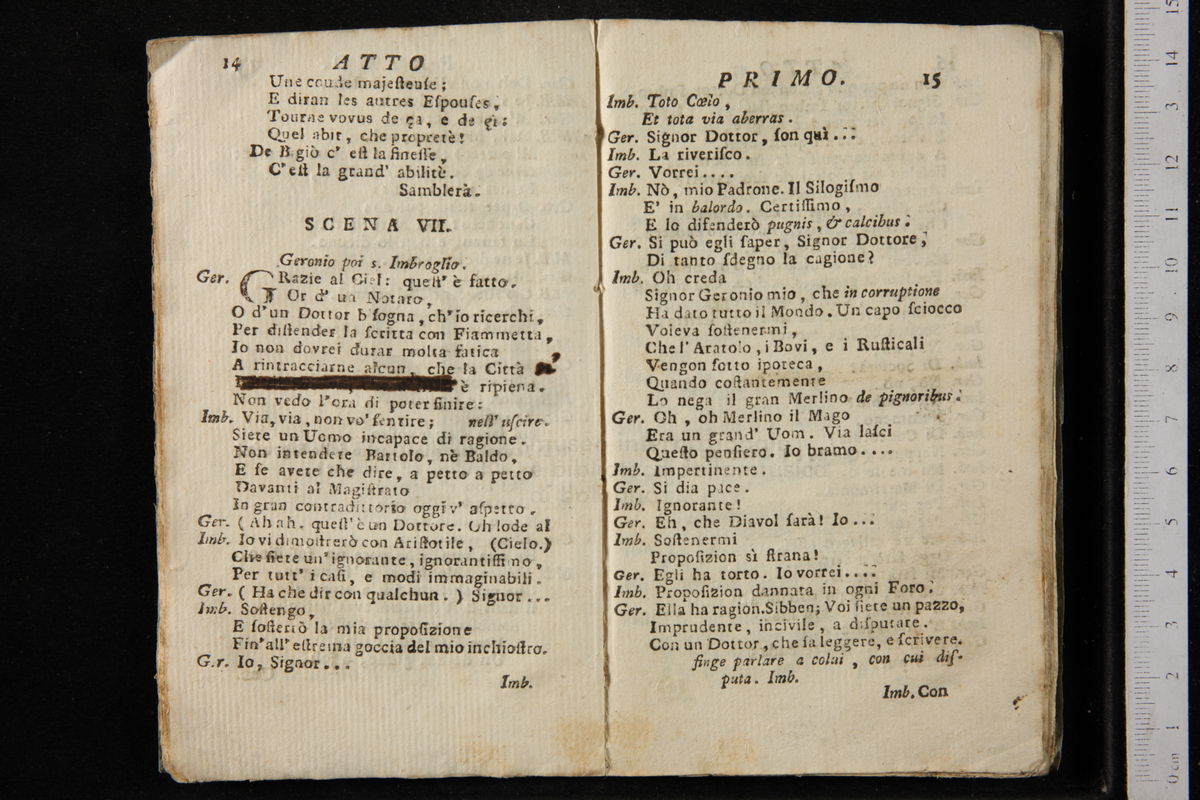 14 ATTO
Une coude majeſteuſe;
E diran les autres Eſpouſes,
Tourne vovus de ça, e de çi:
Quel abit, che propretè!
De B giò c' eſt la fineſſe,
C'eſt la grand' abilitè.
Samblerà.
SCENA VII.
Geronio poi s. Imbroglio.
Ger. GRazie al Ciel: queſt' è fatto.
Or d' un Notaro,
O d'un Dottor b ſogna, ch'io ricerchi,
Per diſtender la ſcritta con Fiammetta,
Io non dovrei durar molta fatica
A rintracciarne alcun, che la Città
è ripiena.
Non vedo l'ora di poter finire:
Imb. Via, via, non vo' ſentire; nell' uſcire.
Siete un Uomo incapace di ragione.
Non intendete Bartolo, nè Baldo.
E ſe avete che dire, a petto a petto
Davanti al Magiſtrato
In gran contradittorio oggi v' aſpetto.
Ger. (Ah ah, queſt' è un Dottore. Oh lode al
Imb. Io vi dimoſtrerò con Ariſtotile, (Cielo.)
Che ſiete un' ignorante, ignorantiſſimo,
Per tutt' i caſi, e modi immaginabili.
Ger. (Ha che dir con qualchun.) Signor...
Imb. Soſtengo,
E ſoſterrò la mia propoſizione
Fin'all' eſtrema goccia del mio inchioſtro.
G.r. Io, Signor...
Imb.
PRIMO. 15
Imb. Toto Cœlo,
Et tota via aberras.
Ger. Signor Dottor, ſon quì...
Imb. La riveriſco.
Ger. Vorrei....
Imb. Nò, mio Padrone. Il Silogiſmo
E' in balordo. Certiſſimo,
E lo difenderò pugnis, & calcibus.
Ger. Si può egli ſaper, Signor Dottore,
Di tanto ſdegno la cagione?
Imb. Oh creda
Signor Geronio mio, che in corruptione
Ha dato tutto il Mondo. Un capo ſciocco
Voleva ſoſtenermi,
Che l' Aratolo, i Bovi, e i Ruſticali
Vengon ſotto ipoteca,
Quando coſtantemente
Lo nega il gran Merlino de pignoribus.
Ger. Oh, oh Merlino il Mago
Era un grand' Uom. Via laſci
Queſto penſiero. Io bramo....
Imb. Impertinente.
Ger. Si dia pace.
Imb. Ignorante!
Ger. Eh, che Diavol ſarà! Io...
Imb. Soſtenermi
Propoſizion sì ſtrana!
Ger. Egli ha torto. Io vorrei....
Imb. Propoſizion dannata in ogni Foro.
Ger. Ella ha ragion. Sibben; Voi ſiete un pazzo,
Imprudente, incivile, a diſputare.
Con un Dottor, che ſa leggere, e ſcrivere.
finge parlare a colui, con cui diſ-
puta. Imb.
Imb. Con